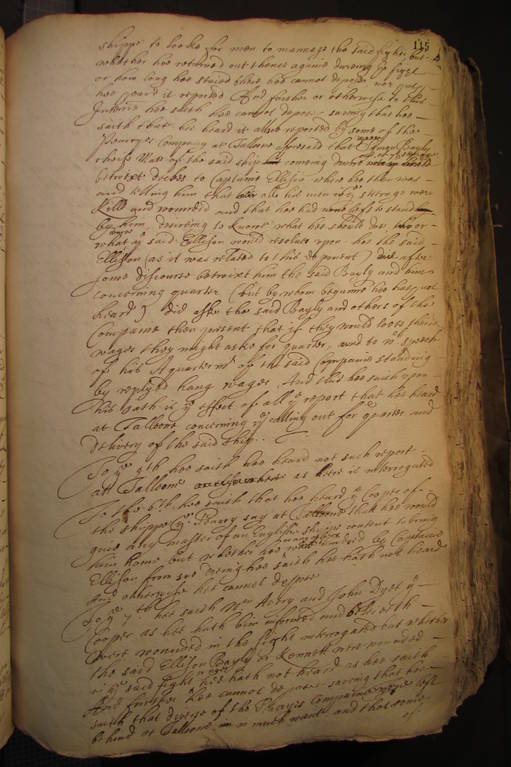 115
shipps to looke for men to mannage the said fight, but
whether hee returned out thence againe during ye fight
or how long hee staied there hee cannot depose nor
hee heard it reported And further or otherwise to this
Inter: hee saith hee cannot depose saving that hee
saith that hee heard it alsoe reported by some of the
Company at Talloone aforesaid that Symon Bayly
cheife Mate of the said ship coming downe
betwixt decks to Captaine Ellison where hee then was
and telling him that all his men were
killd and wounded and that hee had none left to stand
by him desiring to knowe what hee should doe, or
what ye said Ellison would resolve upon hee the said
Ellison (as it was related to this deponent) did after
some discourse betwixt him the said Bayly and him
concerning quarter (but by whom begunn hee hath not
heard) did aske the said Bayly and others of the
Companie then present that if they would loose their
wages they might aske for quarter, and to wch speech
one of his quarter mrs of the said Companie standing
by replyed hang wages, And this hee saith upon
his oath is ye effect of all ye report that hee heard
at Talloone concerning ye calling out for quarter and
delivery of the said ship.
To ye 5th hee saith hee heard not such report
att Talloone or elsewhere as here is interrogated
To the 6th hee saith that hee heard ye Cooper of
the shippe ye Harry say at Talloone that hee would
give any master of an English shippe content to bring
him home but whether hee was wounded by Captaine
Ellison from soe doeing hee saith hee hath not heard
And otherwise hee cannot depose
To ye 7th hee saith Wm Avery and John Dyer ye
Cooper as hee hath bin informed and beleeveth
were wounded in the fight interrogated but whether
the said Ellison Bayly or Kennett were wounded
in ye said fight hee hath not heard as hee saith
And further hee cannot depose saving that hee
saith that divers of the Harrys Companie were left
behind at Talloone in much want and that some
of